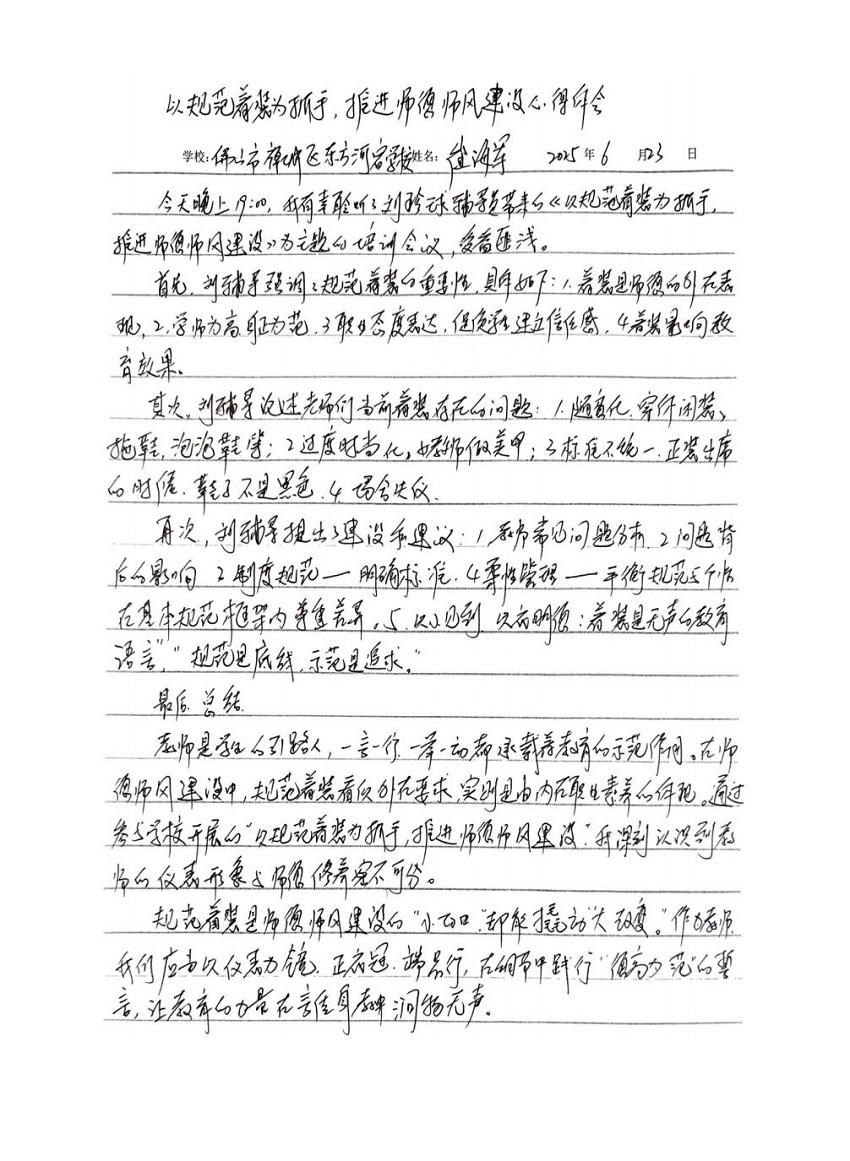 以规范着装为抓手,推进师德师风建设心得体会
学校:佛山市禅城区东方河宕学校姓名: 海军 2025年6月23日
今天晚上19:00,我有幸聆听了刘珍球辅导员带来的《以规范着装为抓手,
推进师德师风建设》为主题的培训会议,受益匪浅。
首先,刘辅导强调了规范着装的重要性,具体如下:1.着装是师德的外在表
现,2.学师为高身正为范.3职业态度表达,促使学生建立信任感.4着装影响教
育效果。
其次,刘辅导说述老师们当前着装存在的问题:1.随意化.穿休闲装、
拖鞋,泡泡鞋等;2过度时尚化,如教师做美甲;3标准不统一.正装出席
的时候.鞋子不是黑色.4.场合失仪.
再次,刘辅导提出了建设和建议:1.教师常见问题分析.2问题背
后的影响 2制度规范——明确标准.4柔性管理——平衡规范与个性
在基本规范框架内尊重差异。5.以小见到 以衣明德:着装是无声的教育
语言","规范是底线.示范是追求。"
最后 总结
教师是学生的引路人,一言一行一举一动都承载着教育的示范作用。在师
德师风建设中,规范着装看似外在要求,实则是由内在职业素养的体现。通过
参与学校开展的"以规范着装为抓手,推进师德师风建设".我深刻认识到教
师的仪表形象与师德修养密不可分。
规范着装是师德师风建设的"小切口"却能撬动"大改变"。作为教师
我们应当以仪表为镜.正衣冠.端品行,在细节中践行"德高为范"的誓
言,让教育的力量在言传身教中润物无声。